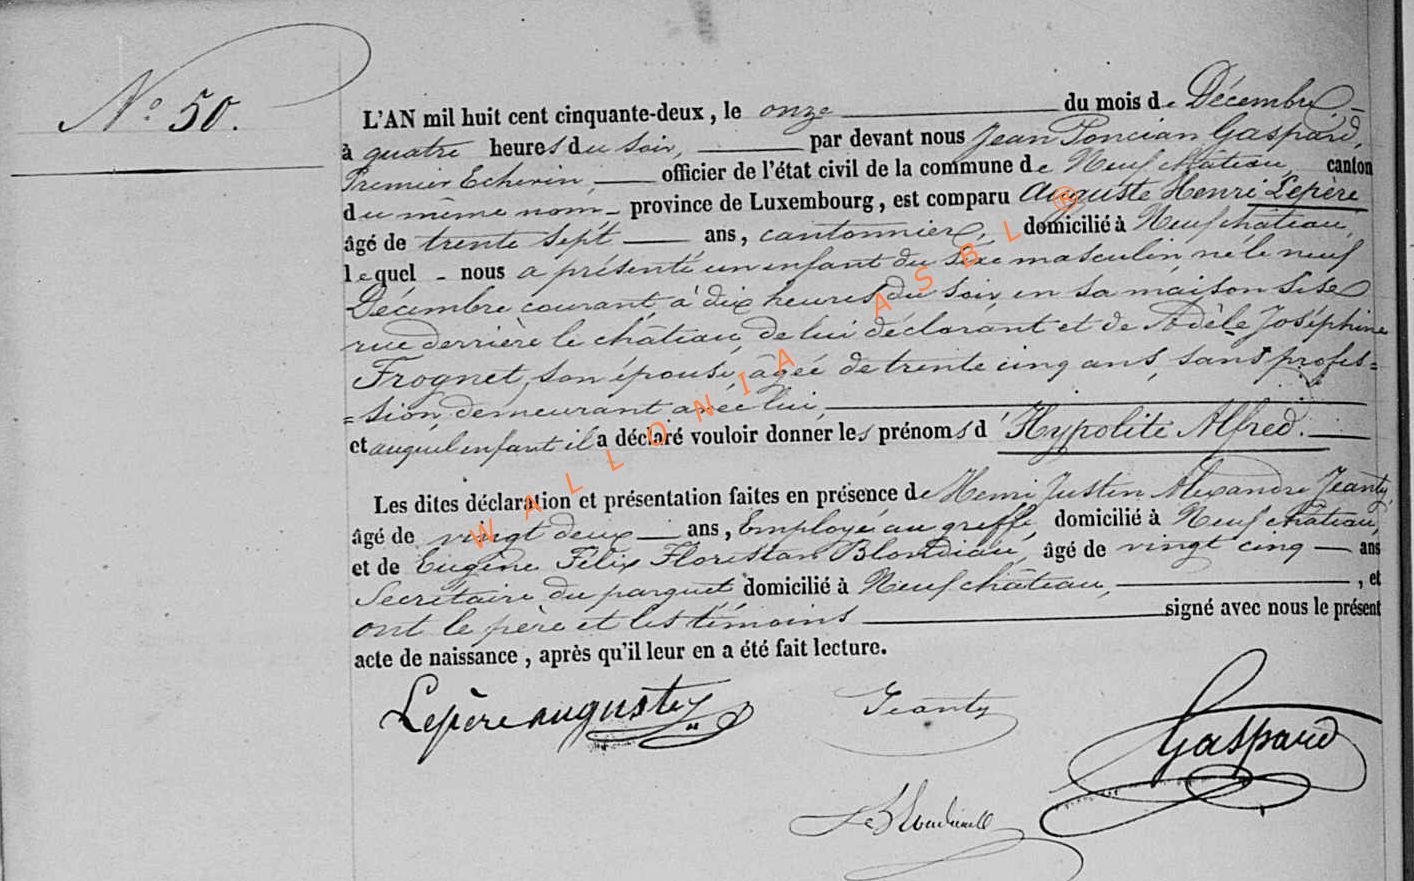 N° 50.
L'AN mil huit cent cinquante-deux, le onze du mois de Décembre
à quatre heures du soir, par devant nous Jean Poncian Gaspard,
Premier Echevin, officier de l'état civil de la commune de Neufchâteau, canton
du même nom, province de Luxembourg, est comparu Auguste Henri Lepère
âgé de trente sept ans, cantonnier, domicilié à Neufchâteau,
lequel nous a présenté un enfant du sexe masculin né le neuf
Décembre courant, à dix heures du soir, en sa maison sise
rue derrière le château, de lui déclarant et de Adèle Joséphine
Frognet, son épouse, âgée de trente cinq ans, sans profes=
=sion, demeurant avec lui,
et auquel enfant il a déclaré vouloir donner les prénoms d'Hypolite Alfred.
Les dites déclaration et présentation faites en présence de Henri Justin Alexandre Jeanty,
âgé de vingt deux ans, Employé au greffe, domicilié à Neufchâteau,
et de Eugène Félix Floristan Blondiau, âgé de vingt cinq ans
Secrétaire du parquet domicilié à Neufchâteau, , et
ont le père et les témoins signé avec nous le présent
acte de naissance, après qu'il leur en a été fait lecture.
Lepère auguste Jeanty Gaspard
WALLONIA ASBL ®